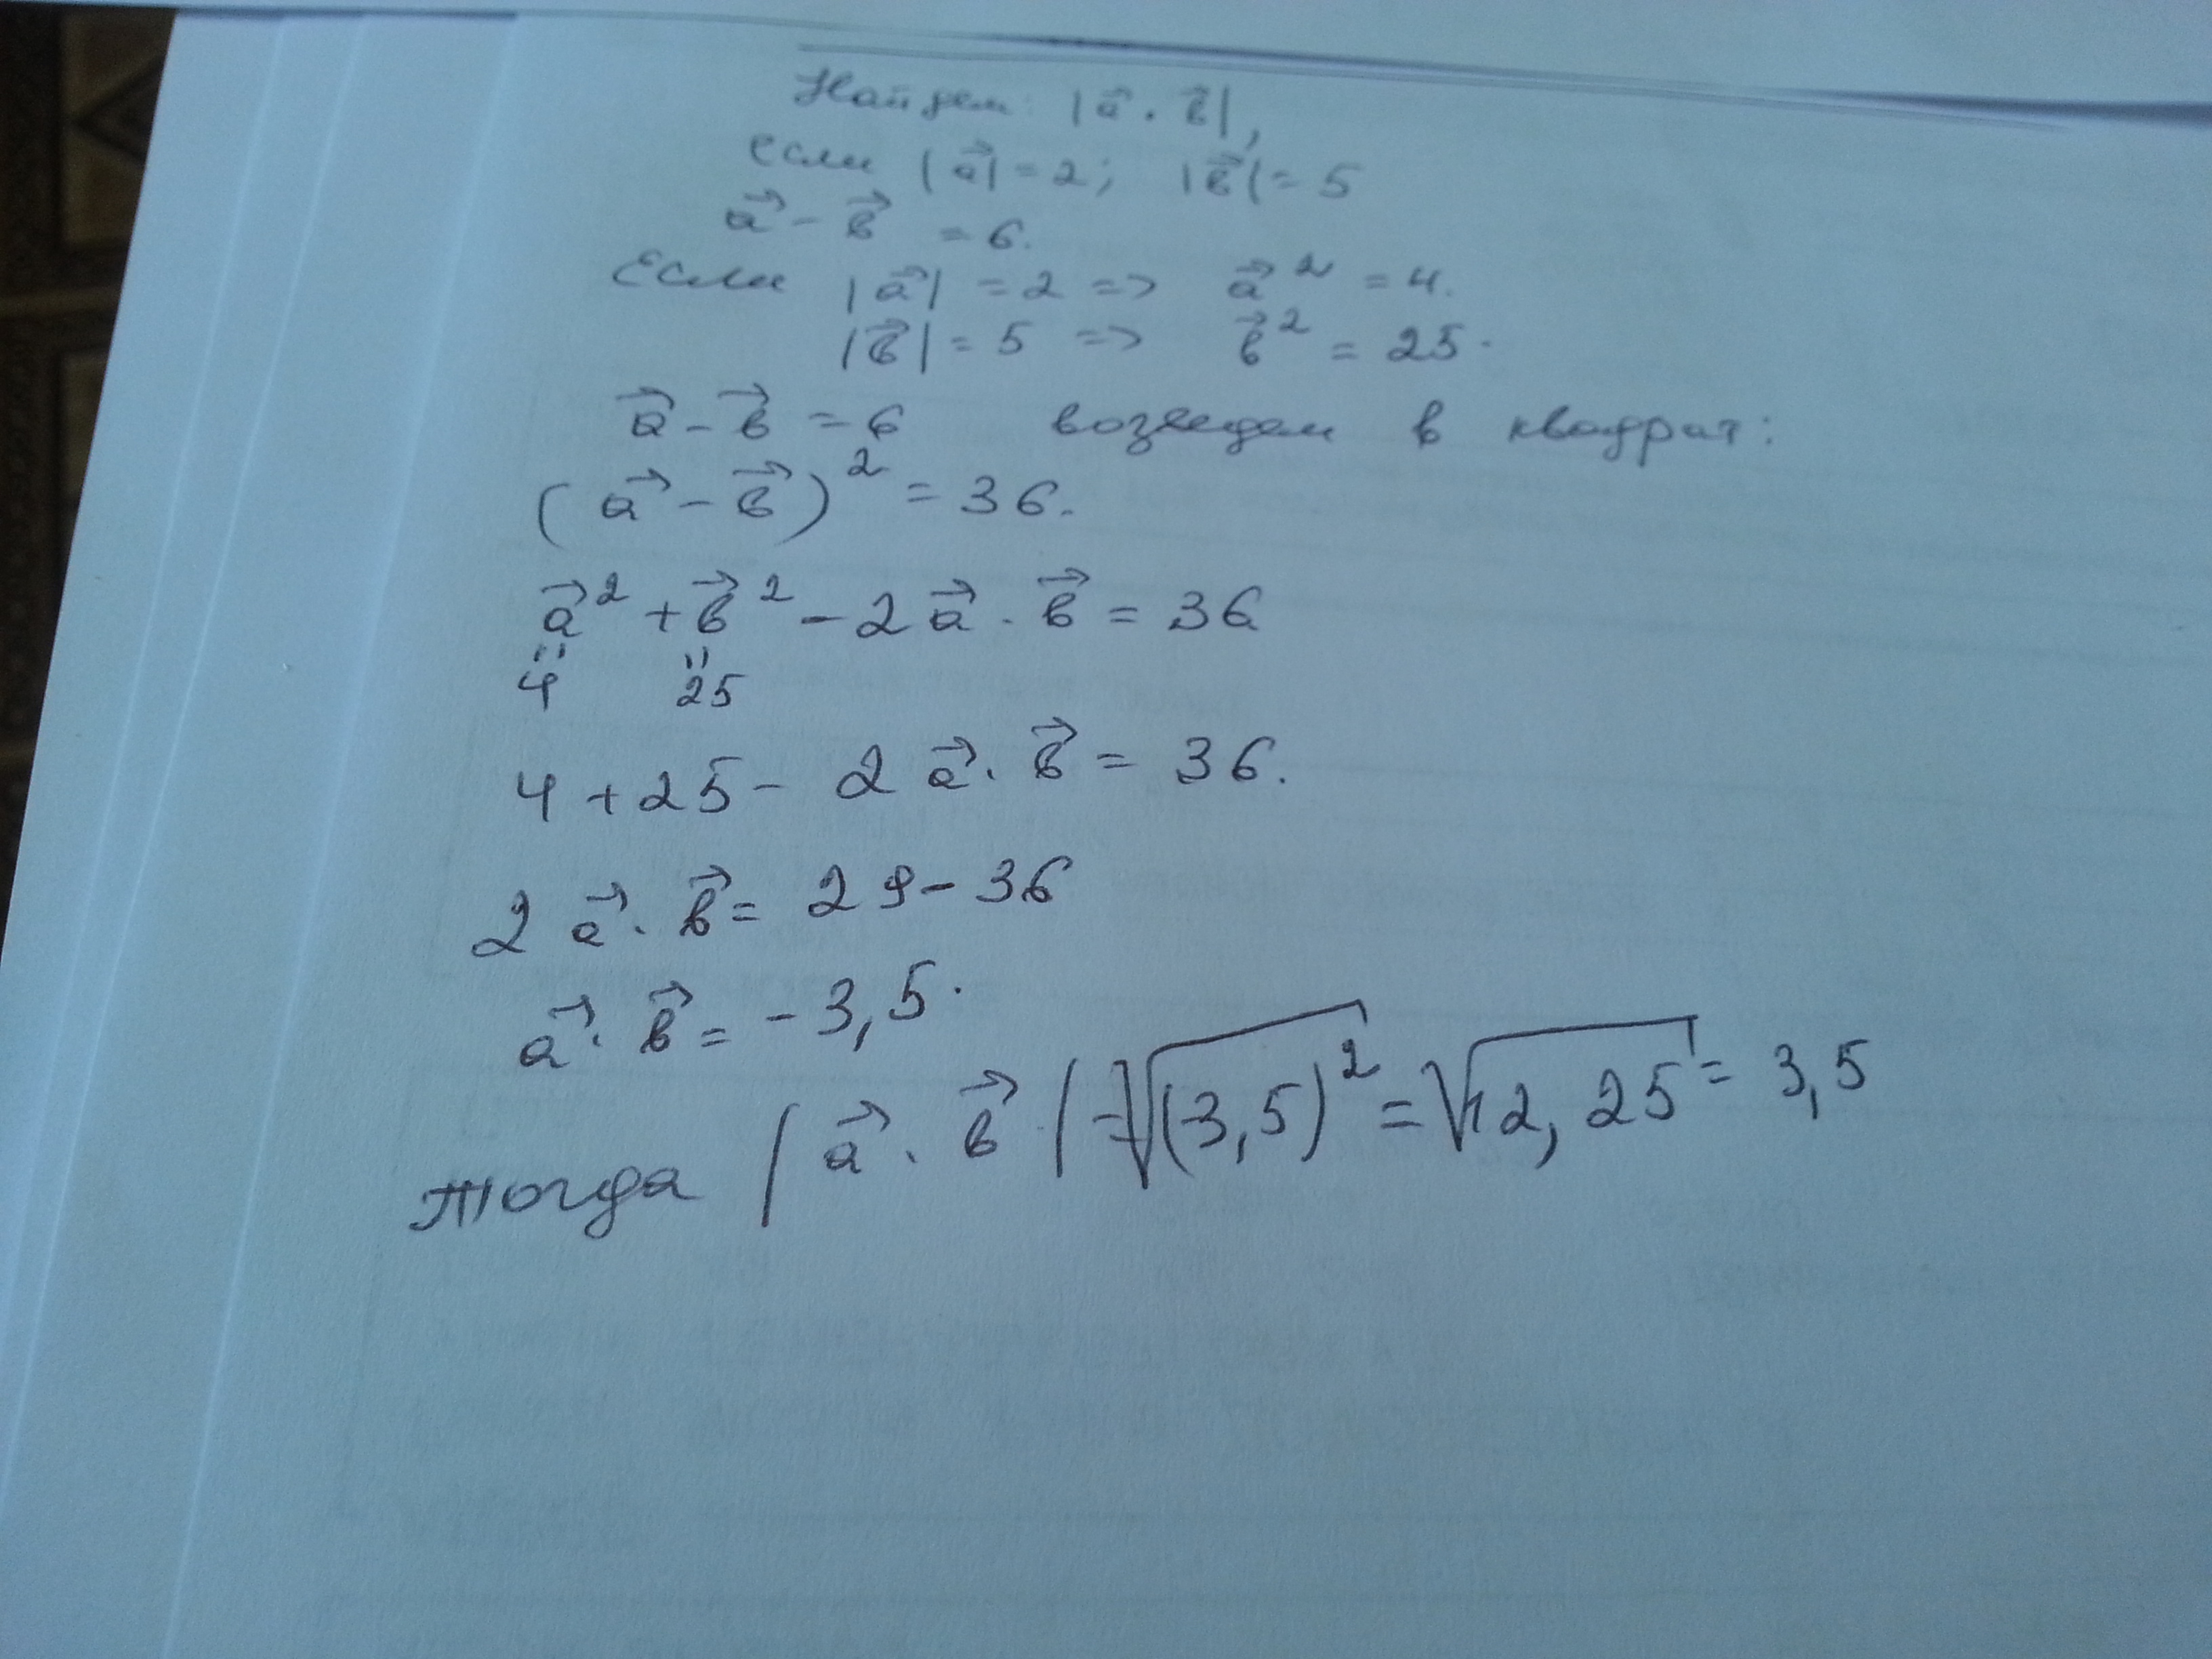 Найдем: |a⃗ · в⃗|,
если |a⃗| = 2; |в⃗| = 5
a⃗ - в⃗ = 6.
Если |a⃗| = 2 => a⃗² = 4.
|в⃗| = 5 => в⃗² = 25.
a⃗ - в⃗ = 6 возведем в квадрат:
(a⃗ - в⃗)² = 36.
a⃗² + в⃗² - 2a⃗ · в⃗ = 36
" "
4 25
4 + 25 - 2a⃗ · в⃗ = 36.
2a⃗ · в⃗ = 29 - 36
a⃗ · в⃗ = -3,5.
Тогда |a⃗ · в⃗| = √(-3,5)² = √12,25 = 3,5